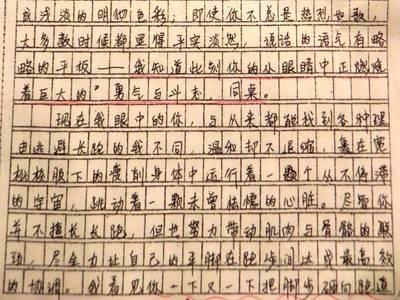 或浅淡的明彻色彩；即使你不总是热烈如歌，
大多数时候都显得平实淡然，说话的语气有略
略的平板——我知道此刻你的从眼睛中正燃烧
着巨大的“勇气与斗志，同桌。
现在我眼中的你，与从来都能找到各种理
由逃避长跑的我不同，温和却不退缩，裹在宽
松校服下的瘦削身体中运行着一颗个从不停滞
的宇宙，跳动着一颗未曾怯懦的心脏。尽管你
并不擅长长跑，但也努力带动肌肉与骨骼的联
动，尽全力让自己的平脚在跑步间达成最高效
的协调。我看见你一下又一下把脚步砸向跑道